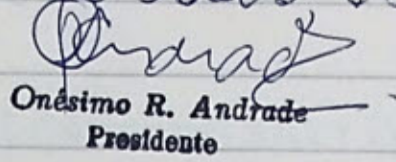 Andrade
Onésimo R. Andrade
Presidente